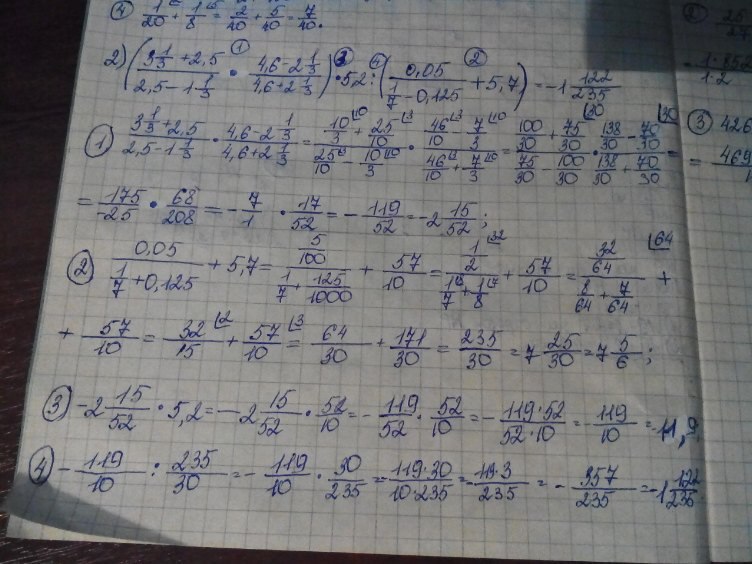 ④ 1/20 + 1/8 = 2/40 + 5/40 = 7/40.
2) ((3 1/3 + 2,5)/(2,5 - 1 1/3) · (4,6 - 2 1/3)/(4,6 + 2 1/3)) · 5,2 : (0,05/(1/7 - 0,125) + 5,7) = -1 122/235
① (3 1/3 + 2,5)/(2,5 - 1 1/3) · (4,6 - 2 1/3)/(4,6 + 2 1/3) = (10/3 + 25/10)/(25/10 - 10/3) · (46/10 - 7/3)/(46/10 + 7/3) = (100/30 + 75/30)/(75/30 - 100/30) · (138/30 - 70/30)/(138/30 + 70/30) =
= 175/-25 · 68/208 = - 7/1 · 17/52 = - 119/52 = -2 15/52;
② 0,05/(1/7 + 0,125) + 5,7 = (5/100)/(1/7 + 125/1000) + 57/10 = (1/2)/(1/7 + 1/8) + 57/10 = (32/64)/(8/64 + 7/64) +
+ 57/10 = 32/15 + 57/10 = 64/30 + 171/30 = 235/30 = 7 25/30 = 7 5/6;
③ -2 15/52 · 5,2 = -2 15/52 · 52/10 = - 119/52 · 52/10 = - 119·52/52·10 = - 119/10 = -11,9.
④ - 119/10 : 235/30 = - 119/10 · 30/235 = - 119·30/10·235 = - 119·3/235 = - 357/235 = -1 122/235
③ 426
= 469